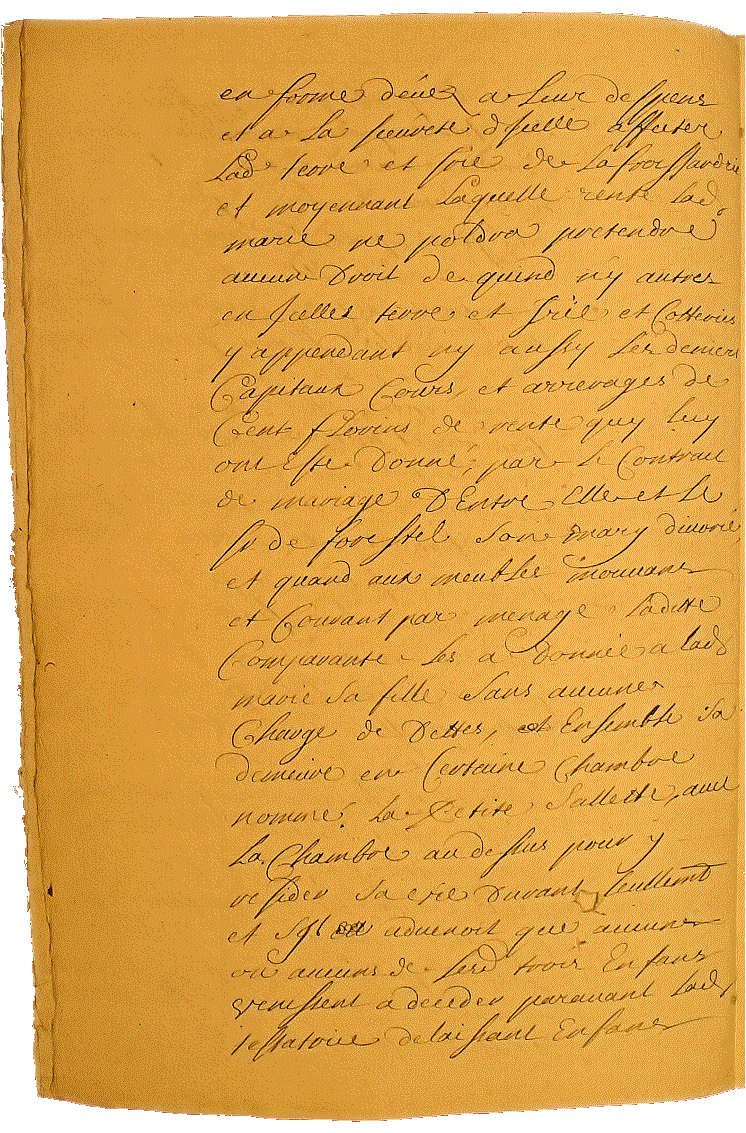 en forme deue a leur despens
et a la seureté dicelle affecter
lad terre et srie de la froissardrie
et moyennant laquelle rente lad
marie ne poldra pretendre
aucun droit de quind ny autres
en icelles terre et srie et Cotteries
y appendant ny aussy les deniers
Capitaux Cours, et arrierages de
Cent florins de rente quy luy
ont Esté donné, par le Contract
de mariage D'Entre Elle et le
sr de forestel son mary divorié,
et quand aux meubles mouvans
et Couvant par menage Laditte
Comparante les a donnée a lad
marie sa fille sans aucune
Charge de Dettes, et Ensemble sa
demeure en Certaine Chambre
nommé la Petite Sallette, avec
La Chambre au dessus pour y
resider sa vie Durant seullemt
et sy advenoit que aucune
ou aucuns de sesd trois Enfans
venissent a deceder paravant Lad
testatrice delaissant Enfans